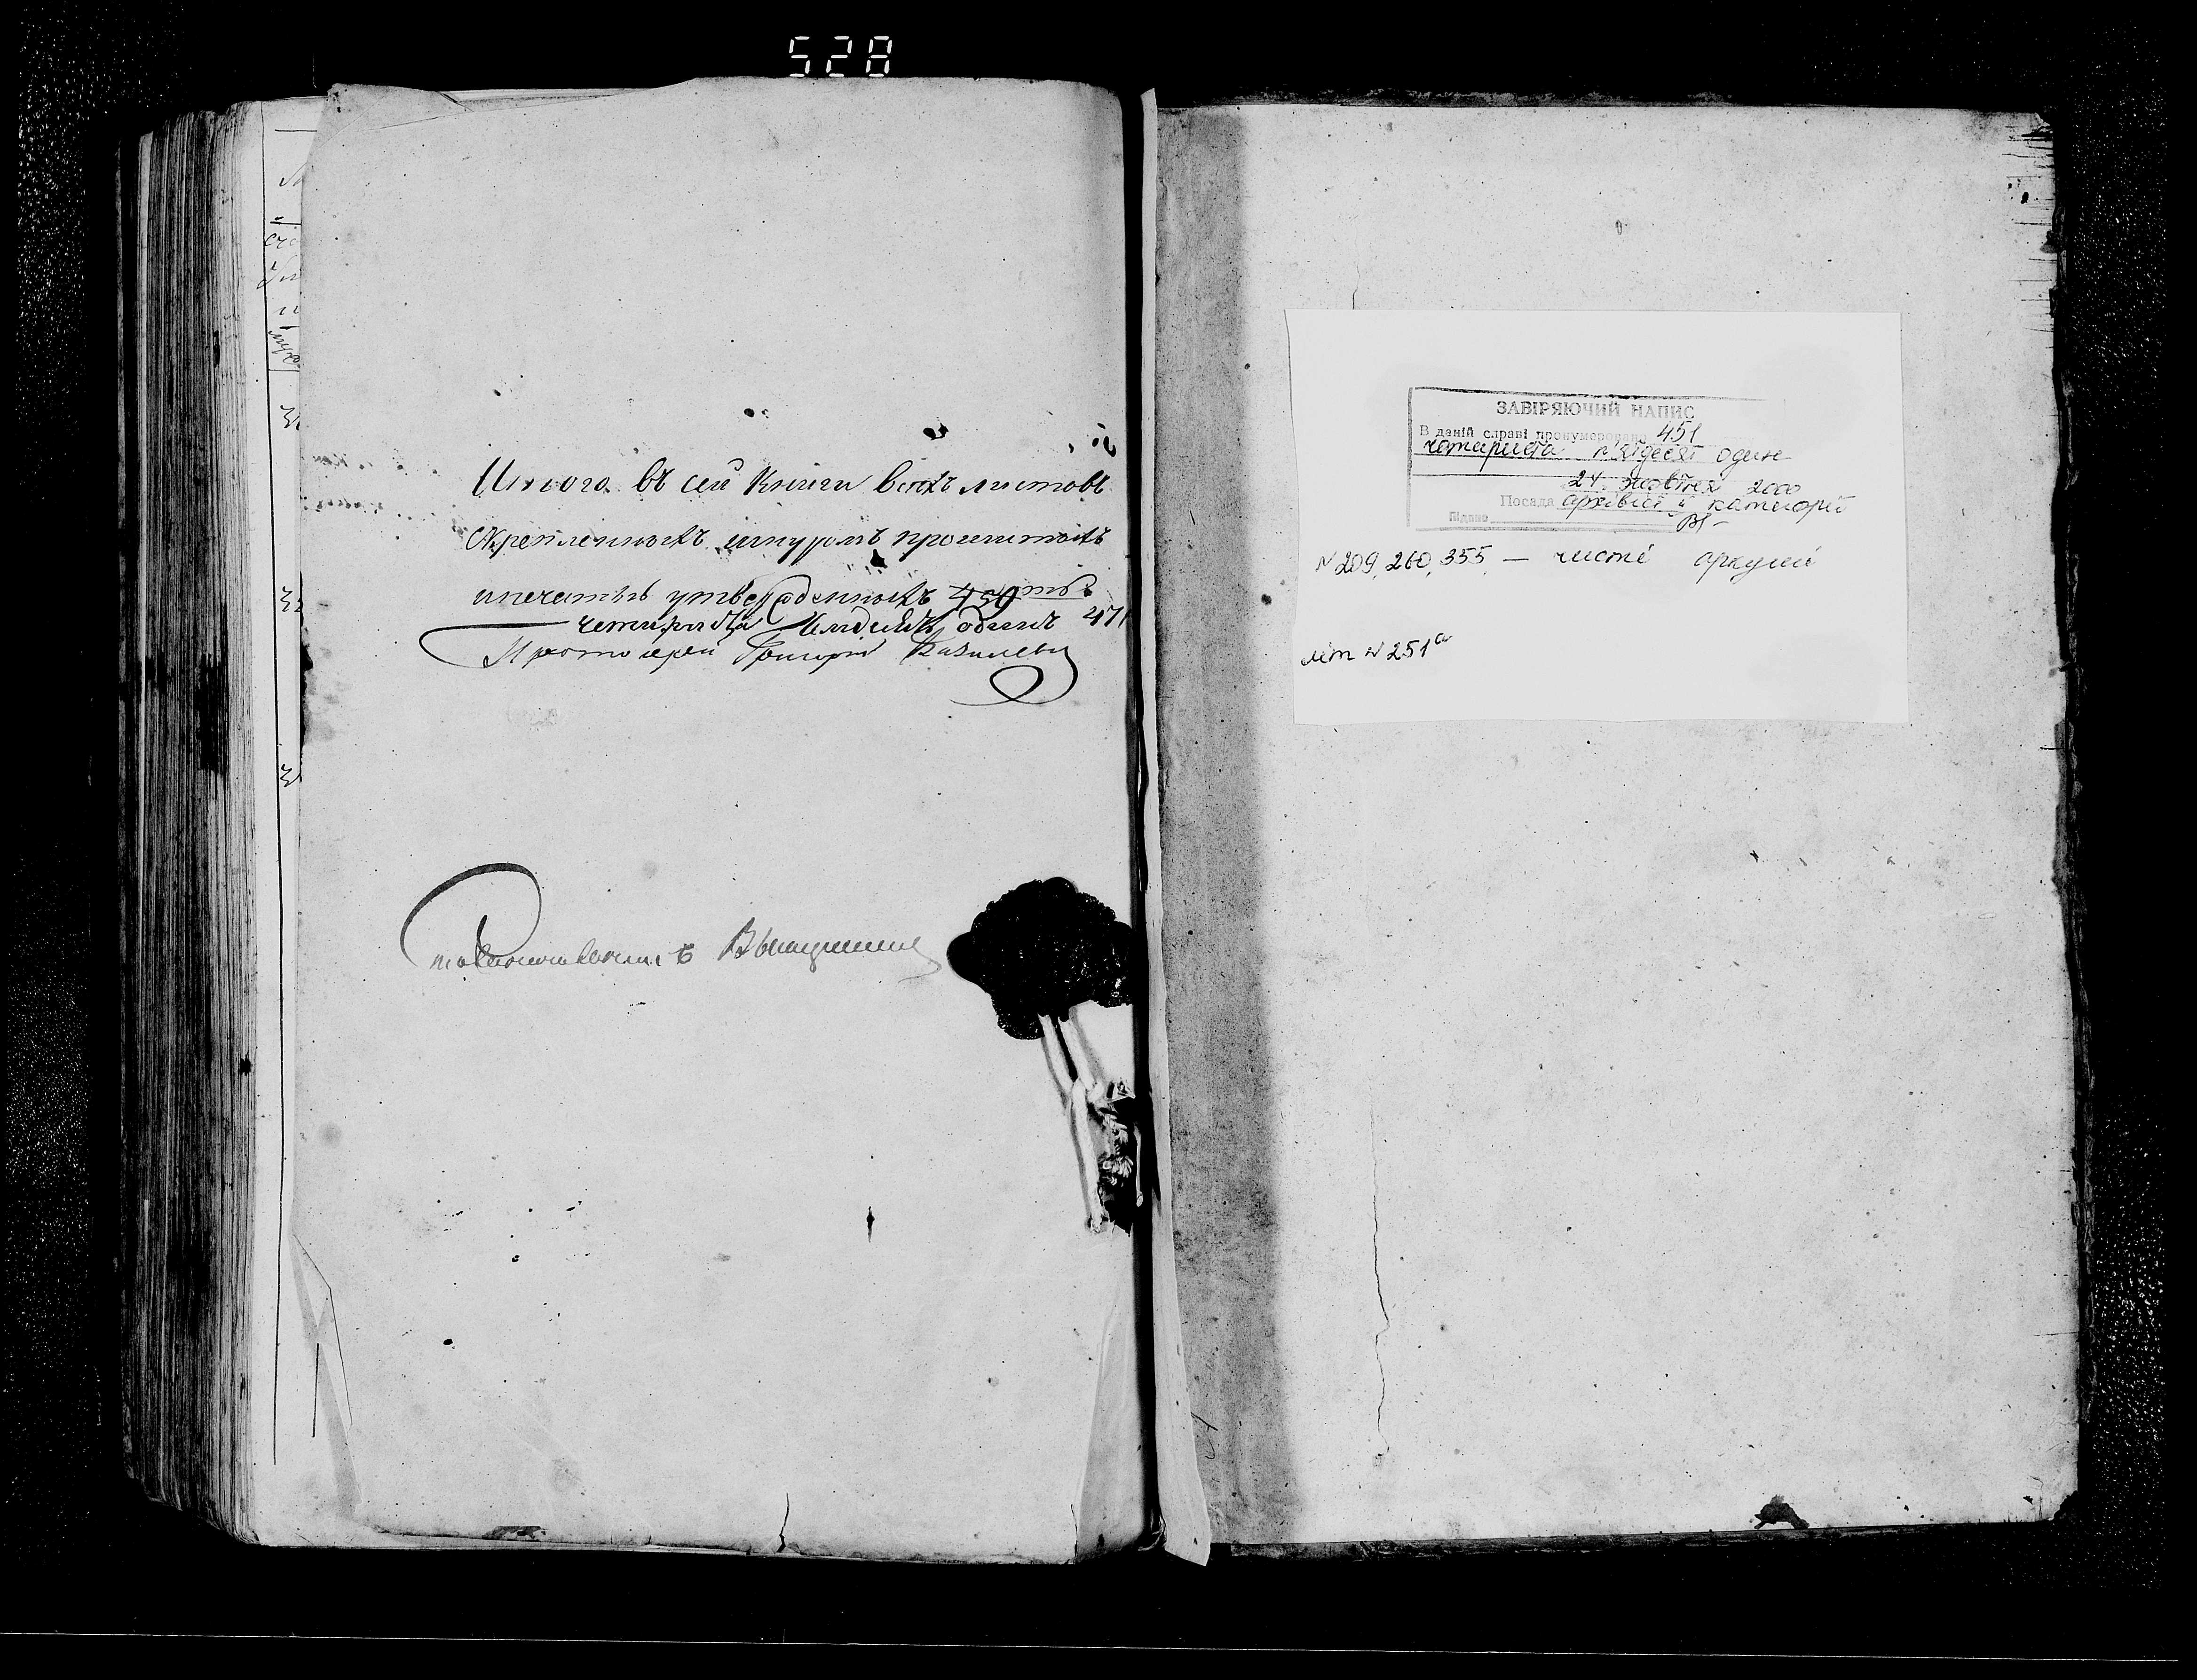 528
Итого въ сей книги всѣхъ листовъ
скрепленныхъ шнуромъ прошитыхъ
ипечатью утвержденныхъ
четыриста одинъ 471
Протоіерей Григорій
ЗАВІРЯЮЧИЙ НАПИС
В даній справі пронумеровано 451
чотириста п'ятдесят один
24 жовтня 2000
Посада архівіст II категорії
Підпис
N 209, 260, 355 — чисті аркуші
літ N 251а